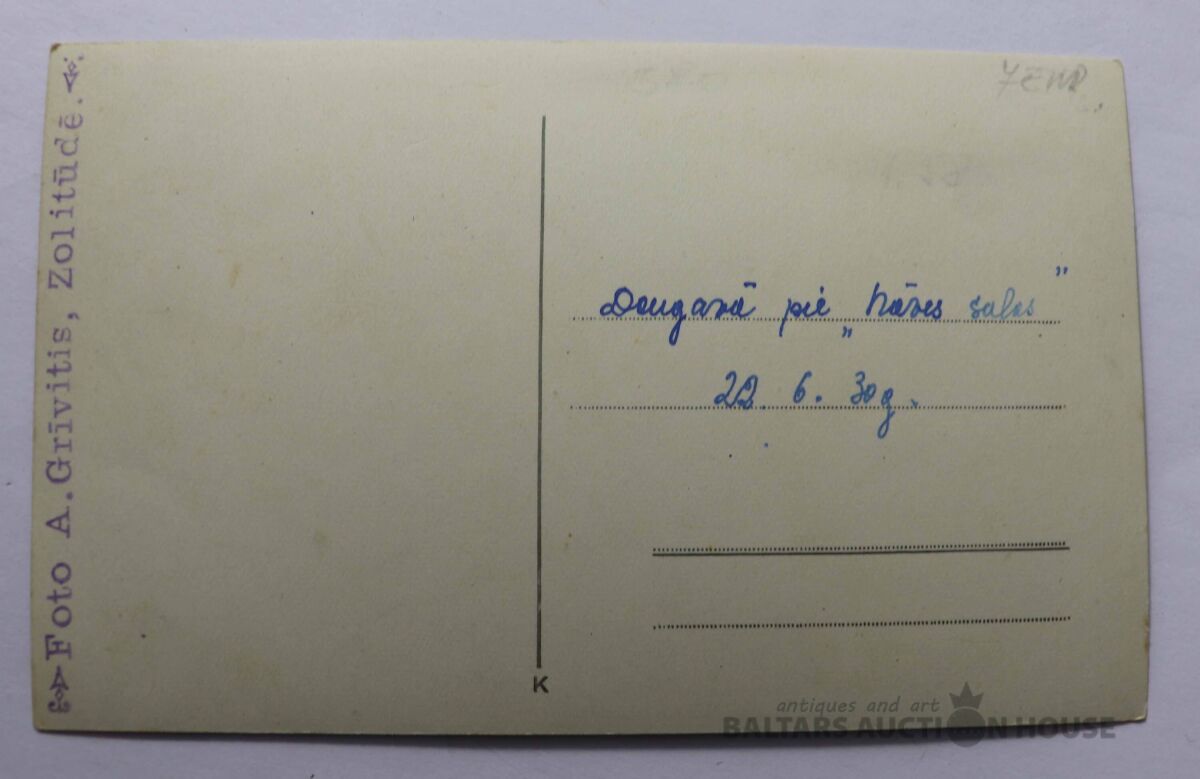 Foto A.Grīvitis, Zolitūdē.
Daugavā pie „Nāves salas”
22. 6. 30g.
K
antiques and art
BALTARS AUCTION HOUSE